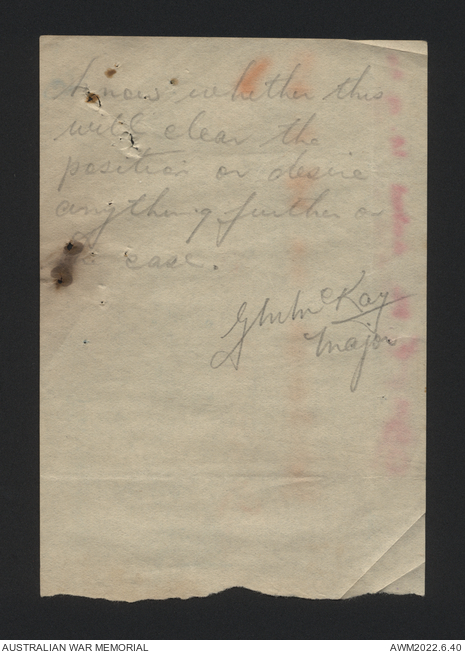 know whether this
will clear the
position or desire
anything further on
case.
McKay
Major
AUSTRALIAN WAR MEMORIAL
AWM2022.6.40